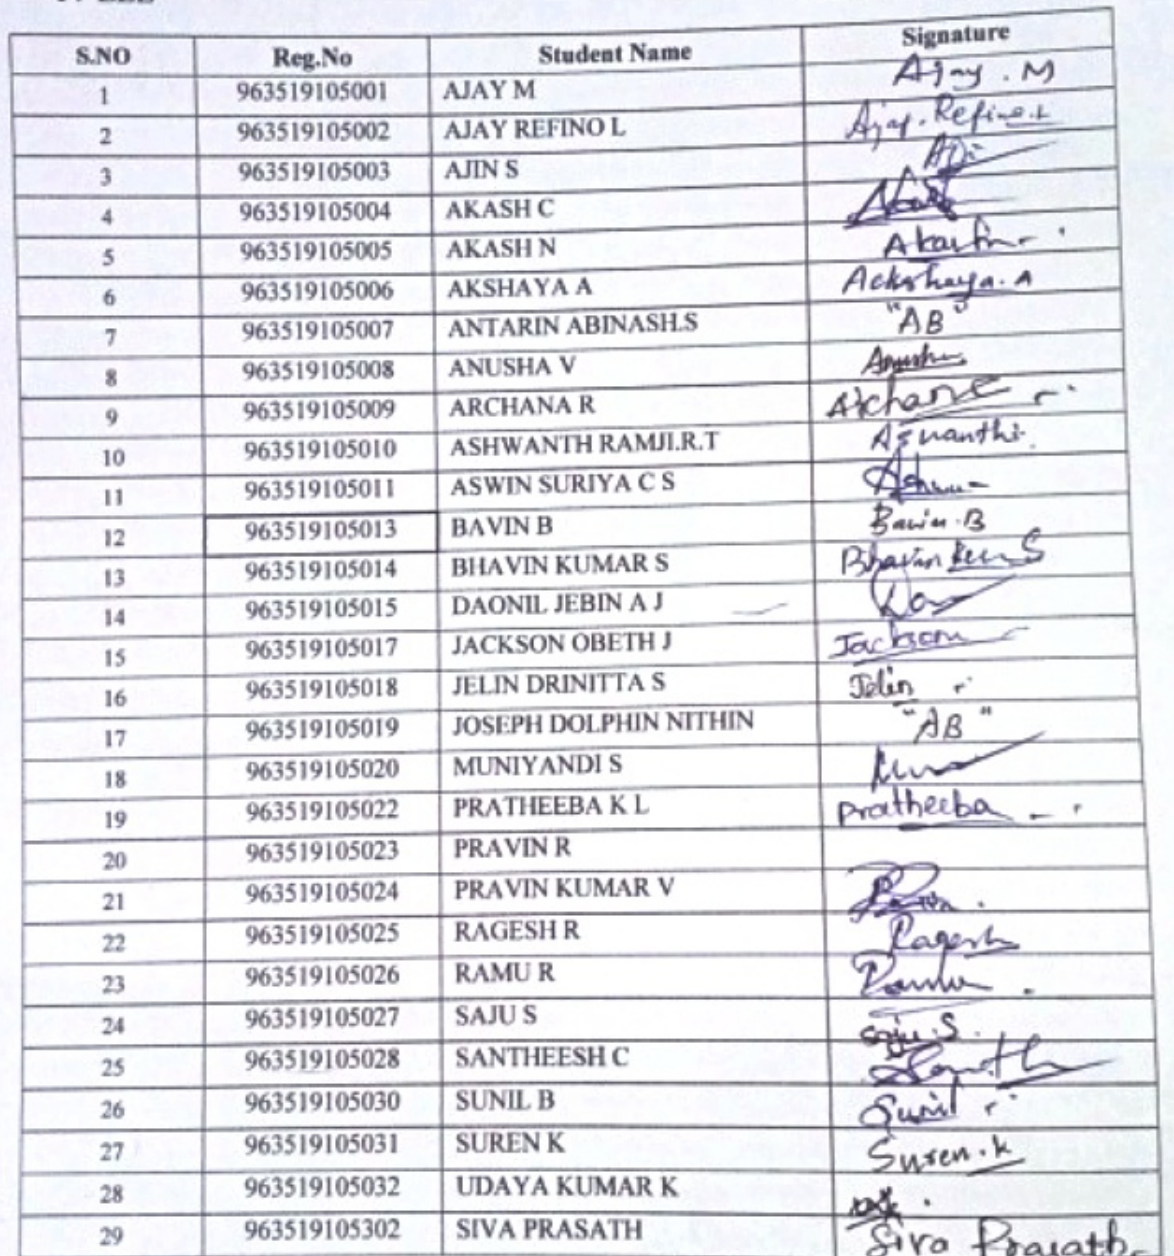 S.NO Reg.No Student Name Signature
1 963519105001 AJAY M Ajay . M
2 963519105002 AJAY REFINO L Ajay. Refino.L
3 963519105003 AJIN S
4 963519105004 AKASH C
5 963519105005 AKASH N Akash
6 963519105006 AKSHAYA A Ackshaya. A
7 963519105007 ANTARIN ABINASH.S "AB"
8 963519105008 ANUSHA V Anusha
9 963519105009 ARCHANA R Archana
10 963519105010 ASHWANTH RAMJI.R.T
11 963519105011 ASWIN SURIYA C S
12 963519105013 BAVIN B Bavin.B
13 963519105014 BHAVIN KUMAR S Bhavin Kum S
14 963519105015 DAONIL JEBIN A J
15 963519105017 JACKSON OBETH J Jackson
16 963519105018 JELIN DRINITTA S Jelin
17 963519105019 JOSEPH DOLPHIN NITHIN "AB"
18 963519105020 MUNIYANDI S
19 963519105022 PRATHEEBA K L Pratheeba
20 963519105023 PRAVIN R
21 963519105024 PRAVIN KUMAR V
22 963519105025 RAGESH R Ragesh
23 963519105026 RAMU R Ramu
24 963519105027 SAJU S Saju.S
25 963519105028 SANTHEESH C
26 963519105030 SUNIL B Sunil
27 963519105031 SUREN K Suren.k
28 963519105032 UDAYA KUMAR K
29 963519105302 SIVA PRASATH Siva Prasath